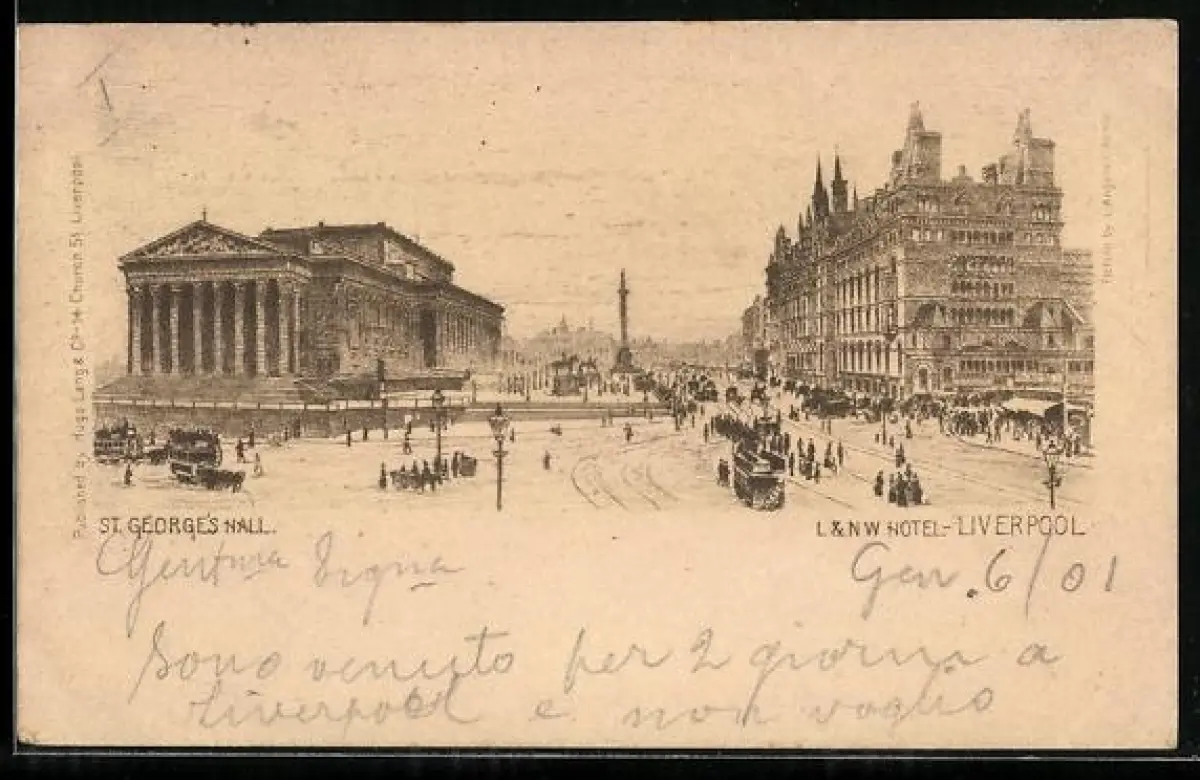 Published by Higgs Lang & Co 14 Church St. Liverpool
ST. GEORGE'S HALL.
L & N W HOTEL - LIVERPOOL
Gentma Sigra
Gen. 6/01
Sono venuto per 2 giorni a
Liverpool e non voglio